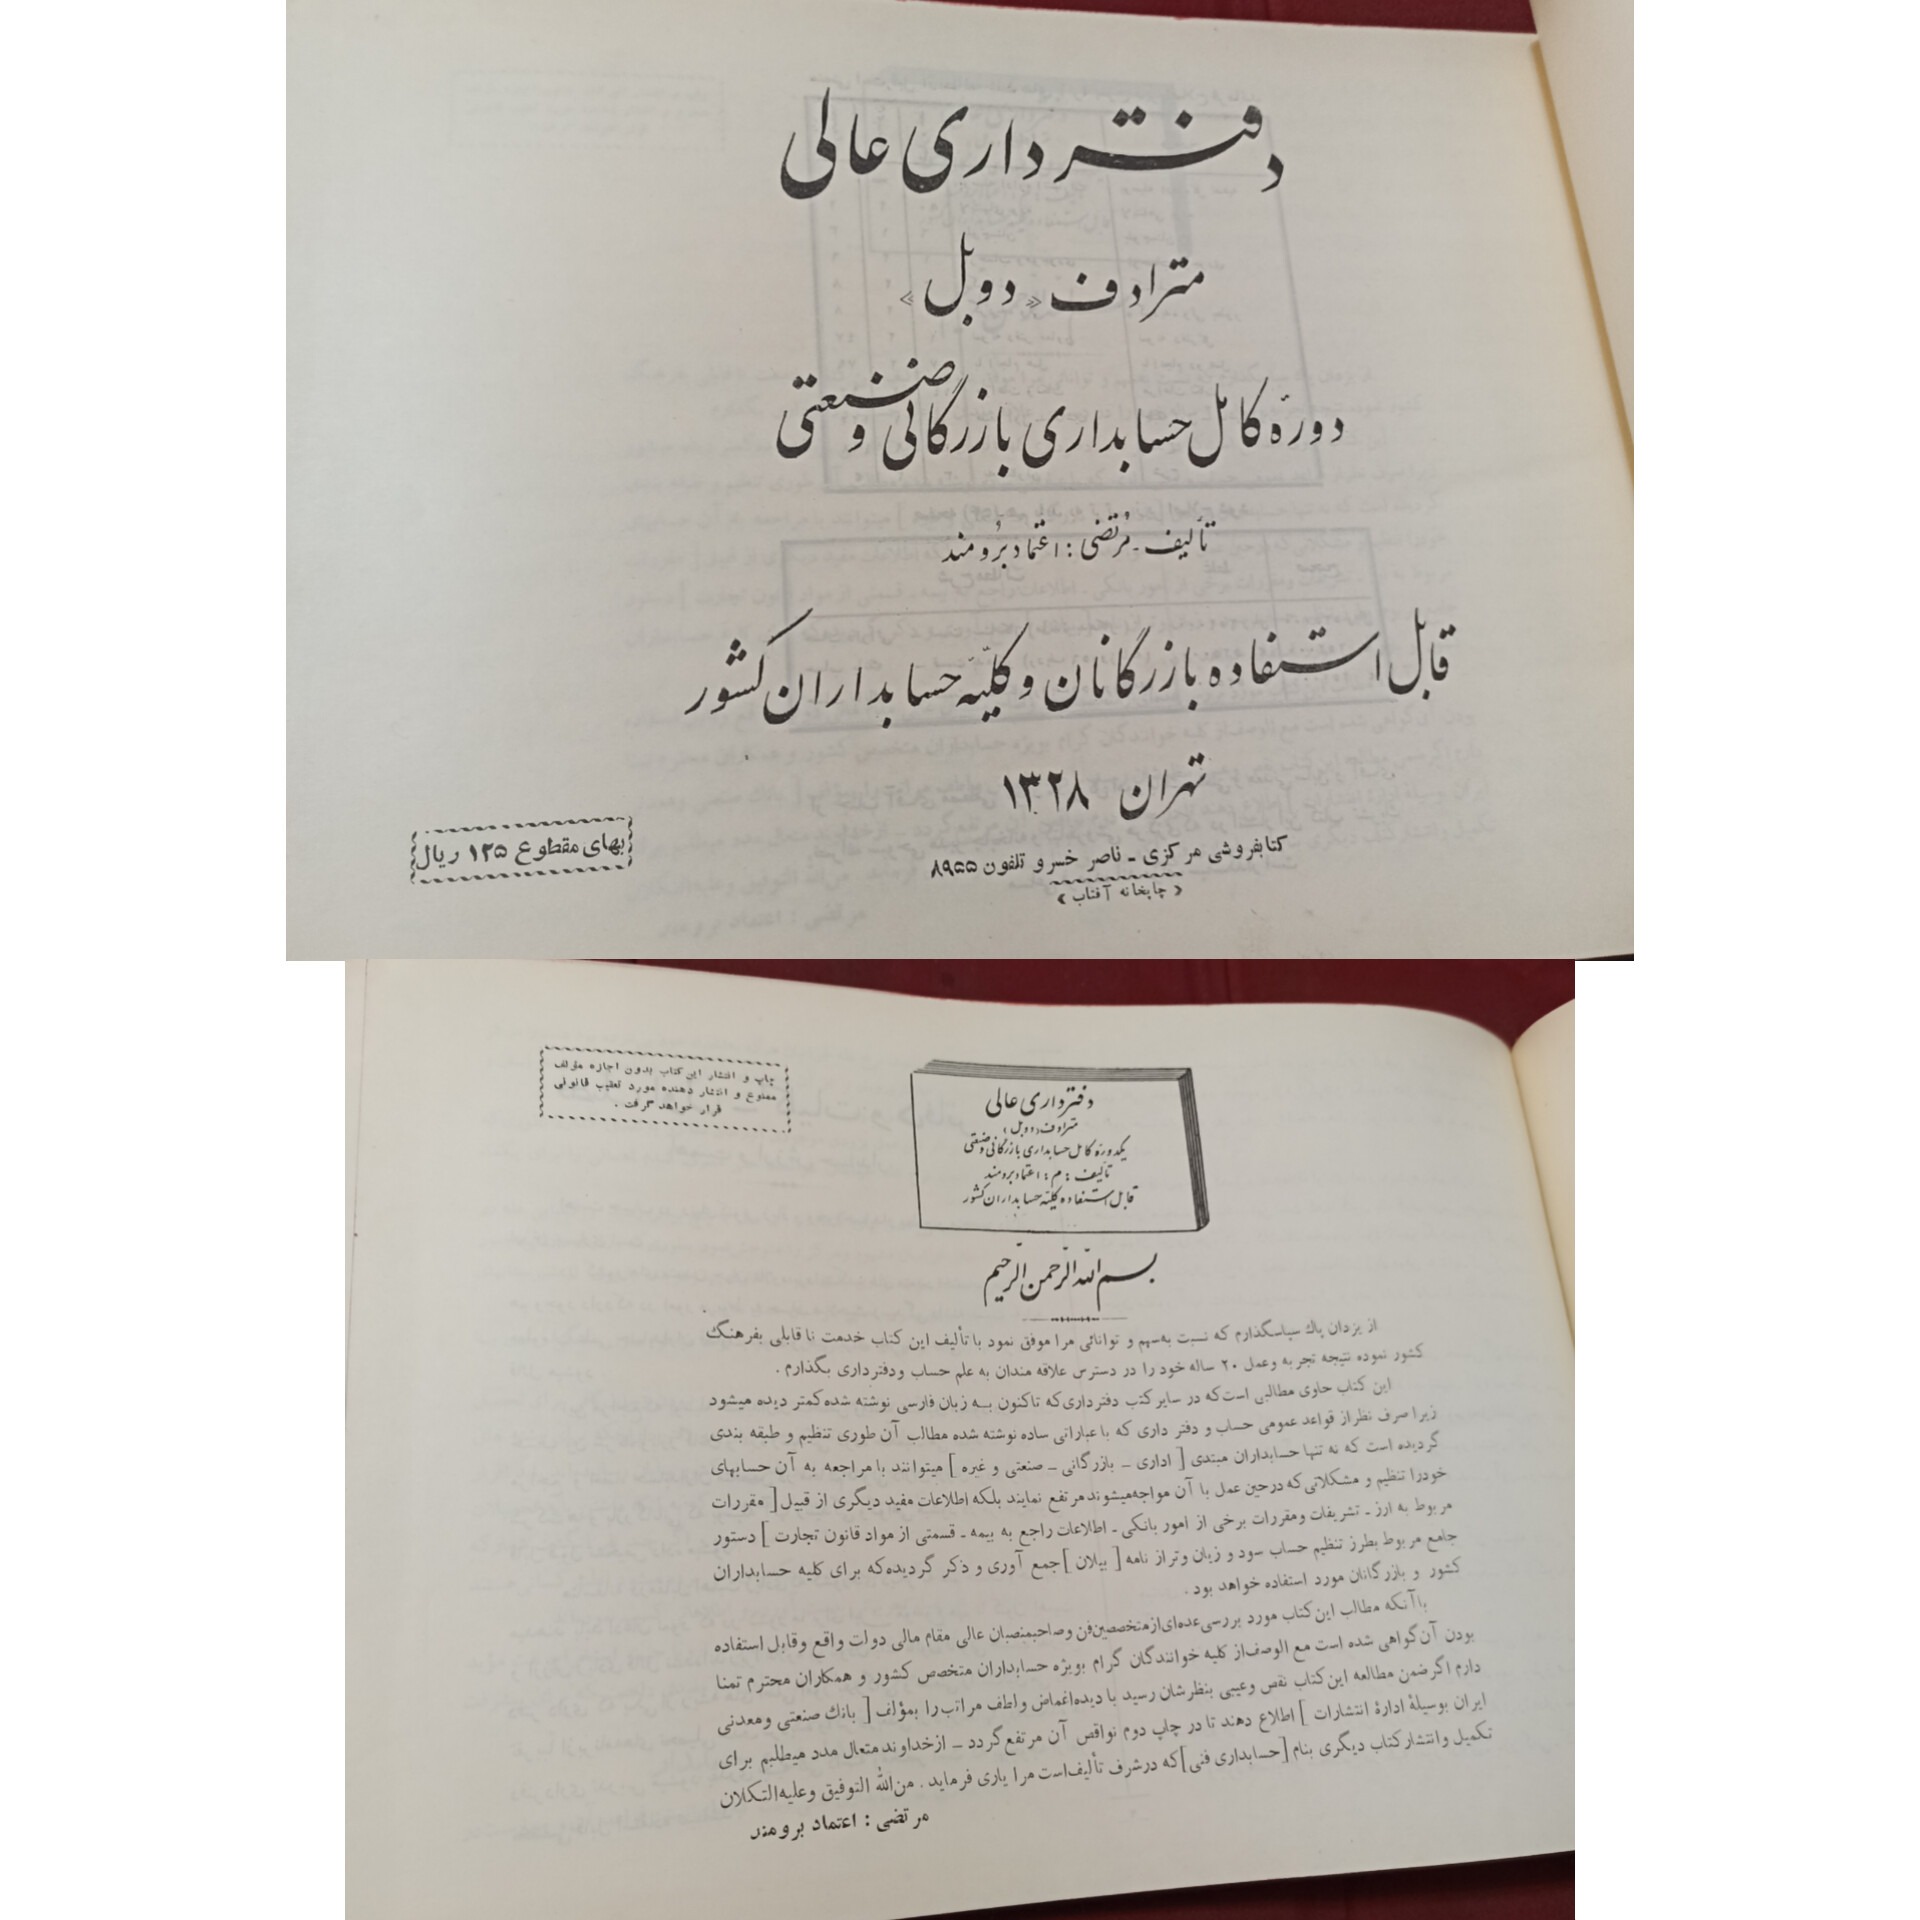 دفترداری عالی
مترادف «دوبل»
دورهٔ کامل حسابداری بازرگانی و صنعتی
تألیف - مُرتضی : اعتماد بُرومند
قابل استفاده بازرگانان و کلیّه حسابداران کشور
تهران ۱۳۲۸
بهای مقطوع ۱۲۵ ریال
کتابفروشی مرکزی - ناصر خسرو تلفون ۸۹۵۵
« چاپخانه آفتاب »
چاپ و انتشار این کتاب بدون اجازه مؤلف
ممنوع و انتشار دهنده مورد تعقیب قانونی
قرار خواهد گرفت .
دفترداری عالی
مترادف «دوبل»
یکدوره کامل حسابداری بازرگانی و صنعتی
تألیف : م : اعتماد برومند
قابل استفاده کلیّه حسابداران کشور
بسم الله الرّحمن الرّحیم
از یزدان پاك سپاسگذارم که نسبت به سهم و توانائی مرا موفق نمود با تألیف این کتاب خدمت نا قابلی بفرهنگ
کشور نموده نتیجه تجربه وعمل ۲۰ ساله خود را در دسترس علاقه مندان به علم حساب ودفترداری بگذارم .
این کتاب حاوی مطالبی است که در سایر کتب دفترداری که تاکنون بـه زبان فارسی نوشته شده کمتر دیده میشود
زیرا صرف نظر از قواعد عمومی حساب و دفتر داری که با عباراتی ساده نوشته شده مطالب آن طوری تنظیم و طبقه بندی
گردیده است که نه تنها حسابداران مبتدی [ اداری ـ بازرگانی ـ صنعتی و غیره ] میتوانند با مراجعه به آن حسابهای
خودرا تنظیم و مشکلاتی که درحین عمل با آن مواجه میشوند مرتفع نمایند بلکه اطلاعات مفید دیگری از قبیل [ مقررات
مربوط به ارز ـ تشریفات ومقررات برخی از امور بانکی ـ اطلاعات راجع به بیمه ـ قسمتی از مواد قانون تجارت ] دستور
جامع مربوط بطرز تنظیم حساب سود و زیان وتراز نامه [ بیلان ] جمع آوری و ذکر گردیده که برای کلیه حسابداران
کشور و بازرگانان مورد استفاده خواهد بود .
با آنکه مطالب این کتاب مورد بررسی عده ای از متخصصین فن وصاحبمنصبان عالی مقام مالی دولت واقع وقابل استفاده
بودن آن گواهی شده است مع الوصف از کلیه خوانندگان گرام بویژه حسابداران متخصص کشور و همکاران محترم تمنا
دارم اگر ضمن مطالعه این کتاب نقص وعیبی بنظرشان رسید با دیده اغماض ولطف مراتب را بمؤلف [ بانك صنعتی ومعدنی
ایران بوسیلهٔ ادارهٔ انتشارات ] اطلاع دهند تا در چاپ دوم نواقص آن مرتفع گردد ـ از خداوند متعال مدد میطلبم برای
تکمیل وانتشار کتاب دیگری بنام [ حسابداری فنی ] که درشرف تألیف است مرا یاری فرماید . من الله التوفیق وعلیه التکلان
مرتضی : اعتماد برومند